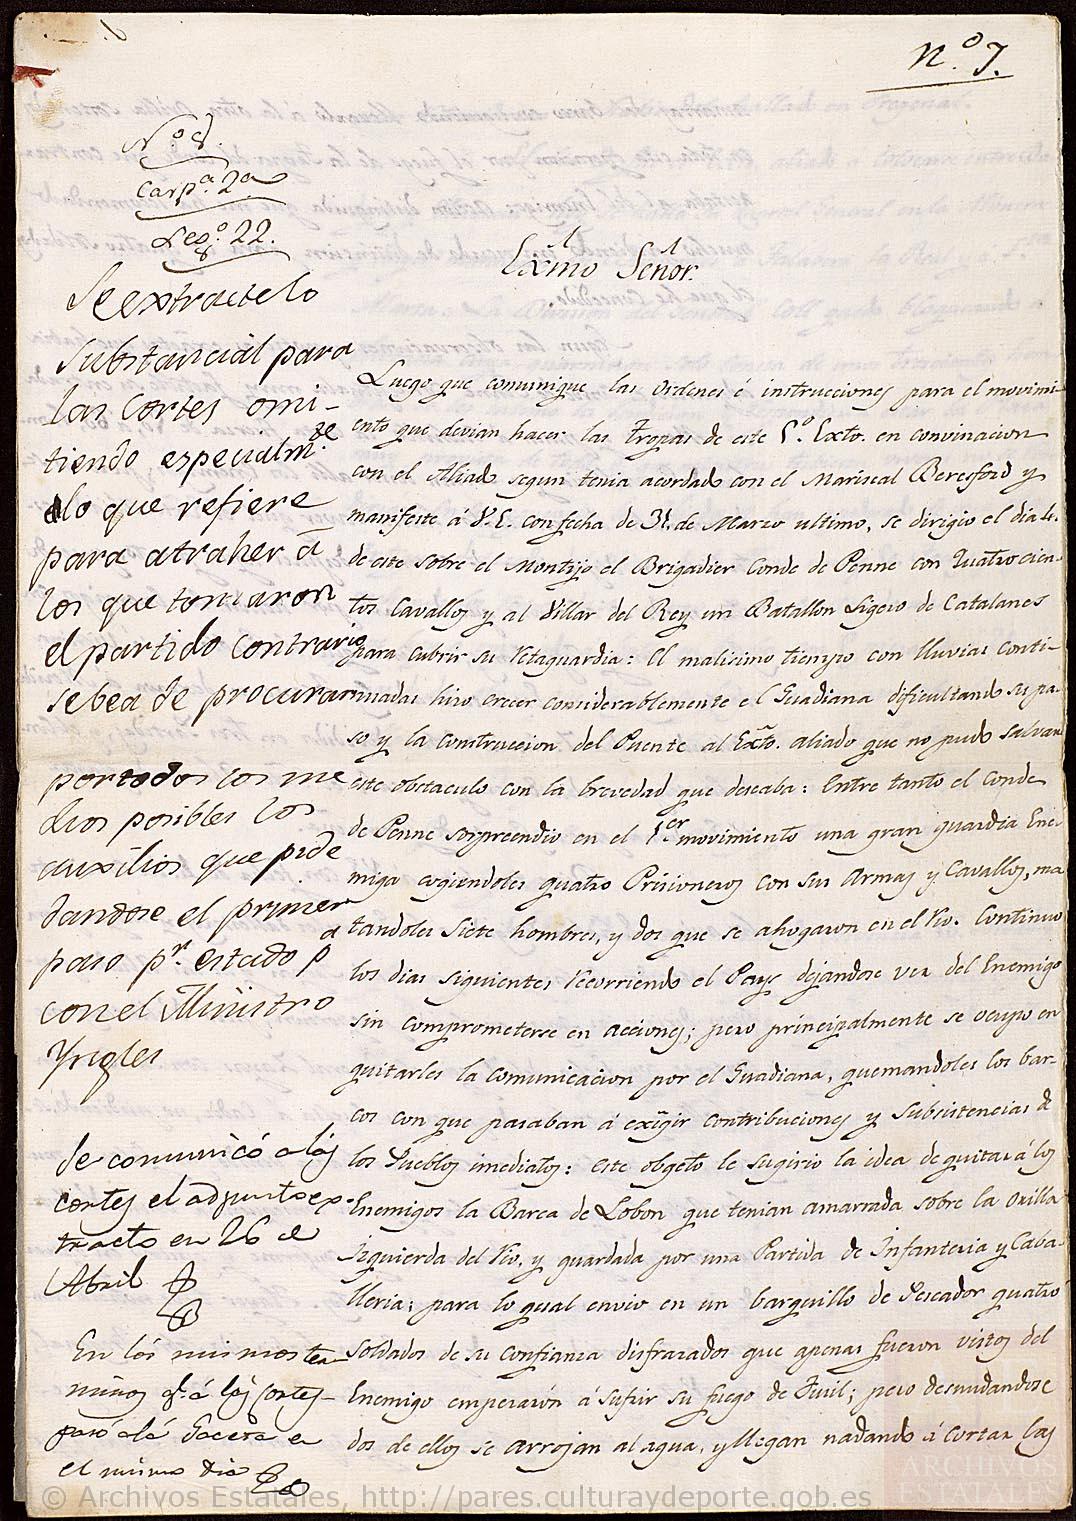 N.º 7.
N.º 8.
Carp.ª 2.ª
Leg.º 22.
Se extracte lo
substancial para
las Cortes omi-
tiendo especialm.te
lo que refiere
para atraher á
los que tomaron
el partido contrario
se bea de procurar
por todos los me
dios posibles los
auxîlios que pide
dandose el primer
paso p.r estado p.a
con el Ministro
Yngles
Se comunicó a las
Cortes el adjunto ex-
tracto en 26 de
Abril
En los mismos ter
minos q.e á las Cortes
pasó a la Gaceta en
el mismo dia
Exmo Señor.
Luego que comunique las ordenes é instrucciones para el movimi-
ento que devian hacer las tropas de este 5.º Exto. en convinacion
con el Aliado segun tenia acordado con el Mariscal Beresford y
manifeste á V.E. con fecha de 31. de Marzo ultimo, se dirigio el dia 4.
de este sobre el Montijo el Brigadier Conde de Penne con Quatrocien-
tos Cavallos y al Villar del Rey un Batallon Ligero de Catalanes
para cubrir su retaguardia: El malisimo tiempo con lluvias conti-
nuadas hizo crecer considerablemente el Guadiana dificultando su pa-
so y la construccion del Puente al Exto. aliado que no pudo salvar
este obstaculo con la brevedad que deseaba: Entre tanto el Conde
de Penne sorpreendio en el 1.er movimiento una gran guardia Ene-
miga cogiendoles quatro Prisioneros con sus Armas y Cavallos, ma
tandoles siete hombres, y dos que se ahogaron en el rio. Continuo
los dias siguientes recorriendo el Pays dejandose ver del Enemigo
sin comprometerse en acciones; pero principalmente se ocupo en
quitarles la comunicacion por el Guadiana, quemandoles los bar-
cos con que pasaban á exîgir contribuciones y subsistencias de
los Pueblos imediatos: este obgeto le sugirio la idea de quitar á los
Enemigos la Barca de Lobon que tenian amarrada sobre la orilla
izquierda del rio, y guardada por una Partida de Infanteria y Caba-
lleria; para lo qual envio en un barquillo de Pescador quatro
soldados de su confianza disfrazados que apenas fueron vistos del
Enemigo empezarón á sufrir su fuego de Fusil; pero desnudandose
dos de ellos se arrojan al agua, y llegan nadando á cortar las
© Archivos Estatales, http://pares.culturaydeporte.gob.es
ARCHIVOS
ESTATALES